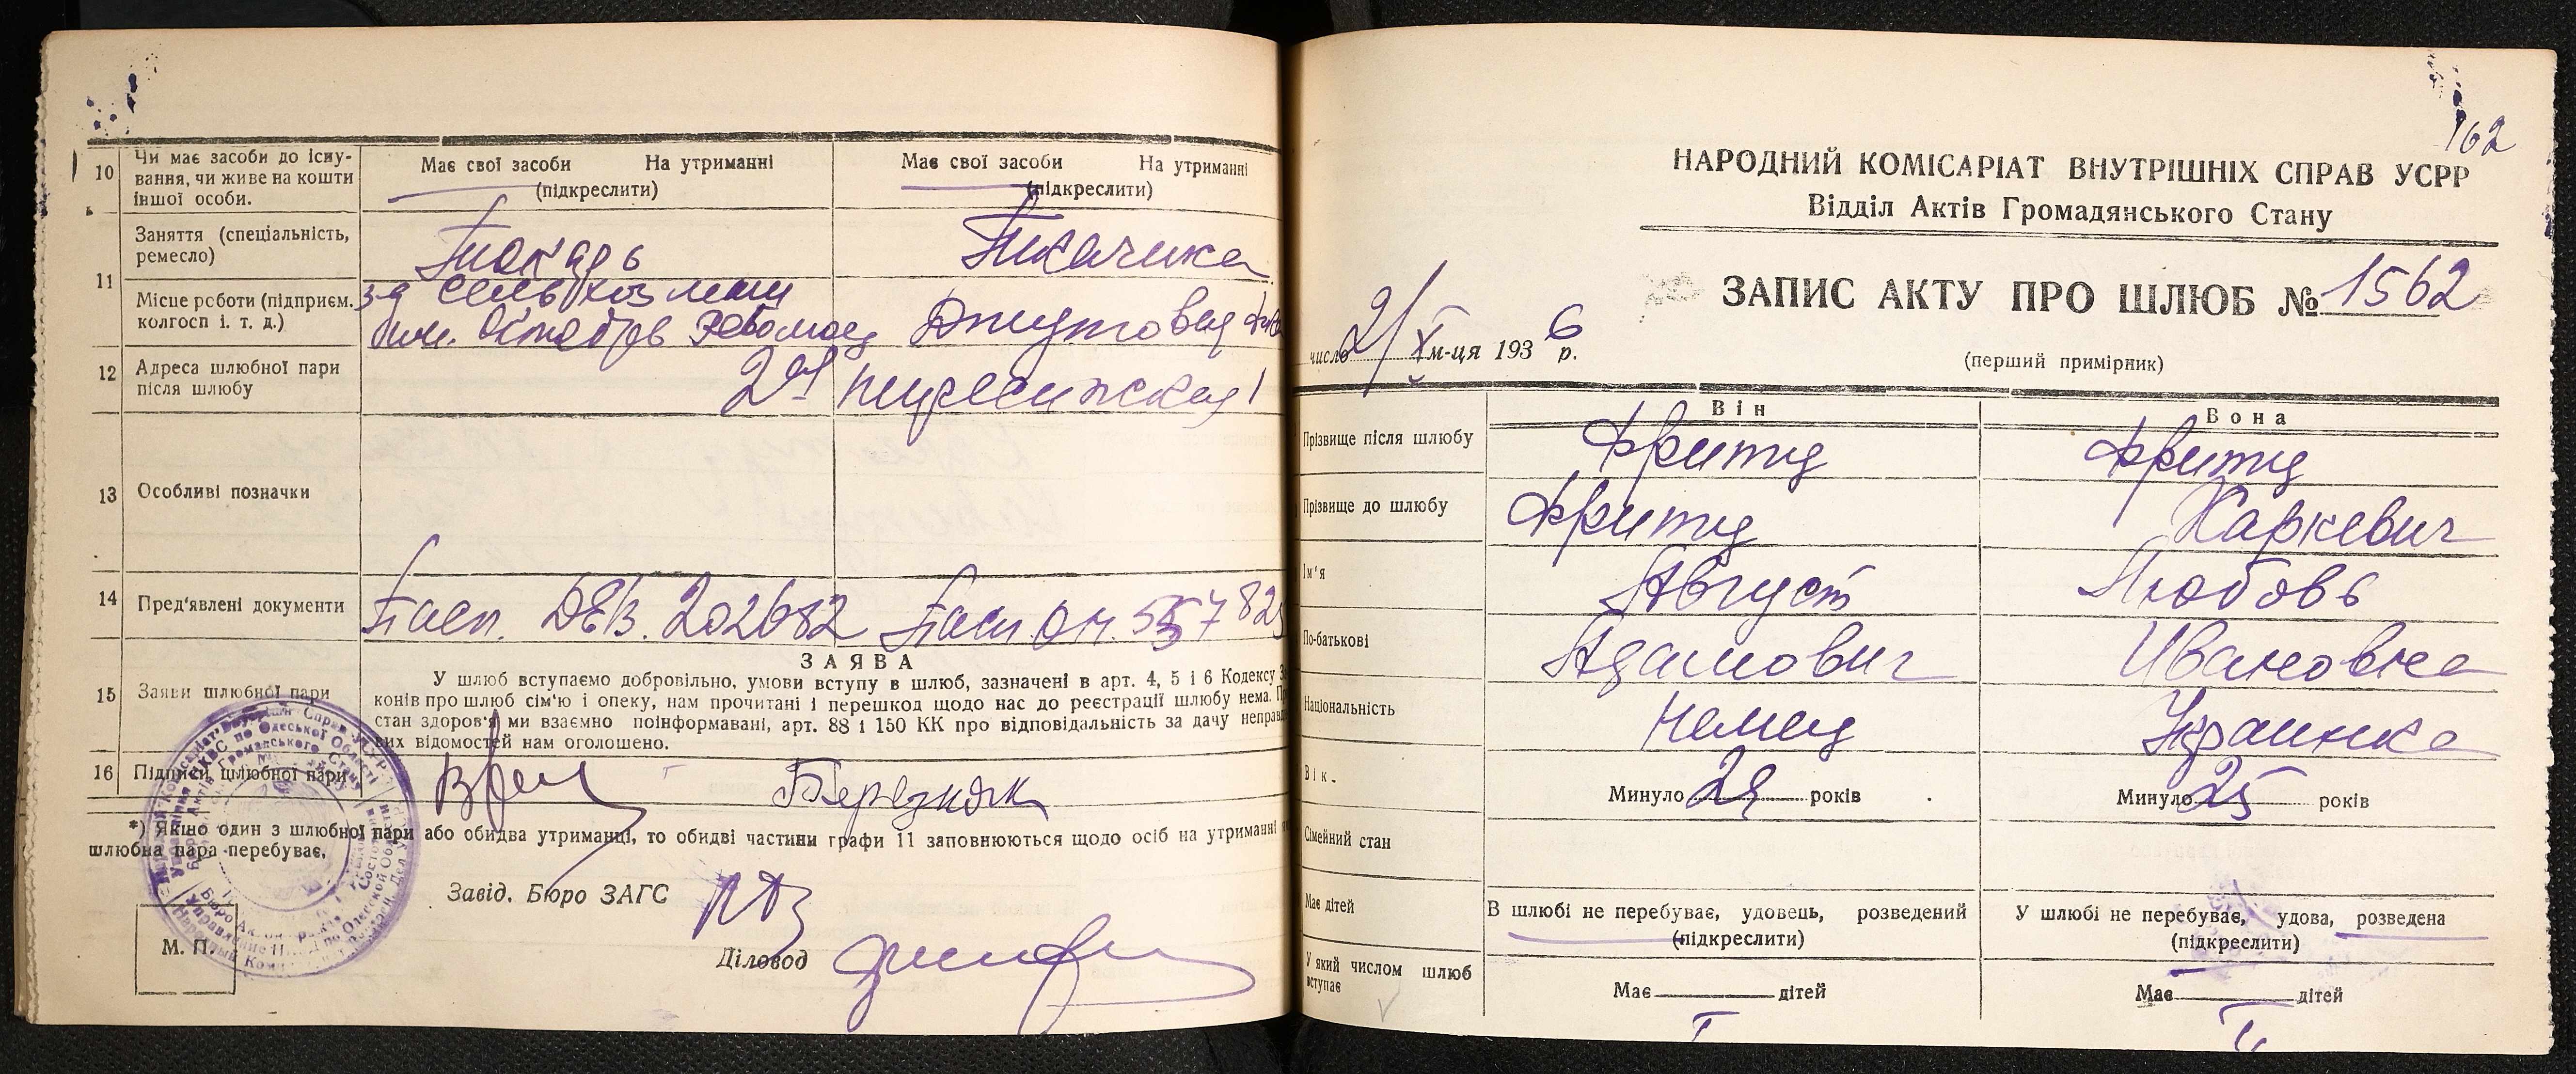 10 Чи має засоби до існу-
вання, чи живе на кошти
іншої особи.
Має свої засоби На утриманні
(підкреслити)
Має свої засоби На утриманні
(підкреслити)
11 Заняття (спеціальність,
ремесло)
Токарь
Ткачиха
Місце роботи (підприєм.
колгосп і. т. д.)
з-д Сельхозмаш
им. Октябрь Революц
Джутовая
12 Адреса шлюбної пари
після шлюбу
2ая пересипская 1
13 Особливі позначки
14 Пред'явлені документи
Пасп. ДЕВ. 202682
Пасп. 557825
15 Заяви шлюбної пари
ЗАЯВА
У шлюб вступаємо добровільно, умови вступу в шлюб, зазначені в арт. 4, 5 і 6 Кодексу
конів про шлюб сім'ю і опеку, нам прочитані і перешкод щодо нас до реєстрації шлюбу нема.
стан здоров'я ми взаємно поінформавані, арт. 88 і 150 КК про відповідальність за дачу неправ
вих відомостей нам оголошено.
16 Підписи шлюбної пари
Березняк
*) Якщо один з шлюбної пари або обидва утриманці, то обидві частини графи 11 заповнюються щодо осіб на утриманні
шлюбна пара перебуває,
Завід. Бюро ЗАГС
Діловод
М. П.
162
НАРОДНИЙ КОМІСАРІАТ ВНУТРІШНІХ СПРАВ УСРР
Відділ Актів Громадянського Стану
ЗАПИС АКТУ ПРО ШЛЮБ № 1562
число 2/X м-ця 1936 р.
(перший примірник)
Він
Вона
Прізвище після шлюбу
Фритц
Фритц
Прізвище до шлюбу
Фритц
Харкевич
Ім'я
Август
Любовь
По-батькові
Адамович
Ивановна
Національність
Немец
Украинка
Вік
Минуло 29 років
Минуло 25 років
Сімейний стан
Має дітей
В шлюбі не перебуває, удовець, розведений
(підкреслити)
У шлюбі не перебуває, удова, розведена
(підкреслити)
У який числом шлюб
вступає
Має дітей
Має дітей
I
II